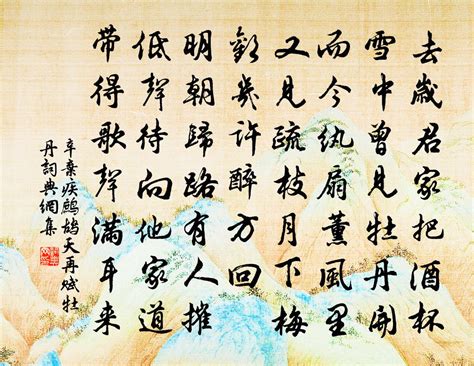 去歲君家把酒杯
雪中曾見牡丹開
而今紈扇薰風里
又見疏枝月下梅
歡幾許醉方回
明朝歸路有人摧
低聲待向他家道
帶得歌聲滿耳來
辛棄疾鷓鴣天再賦牡
丹詞典網集